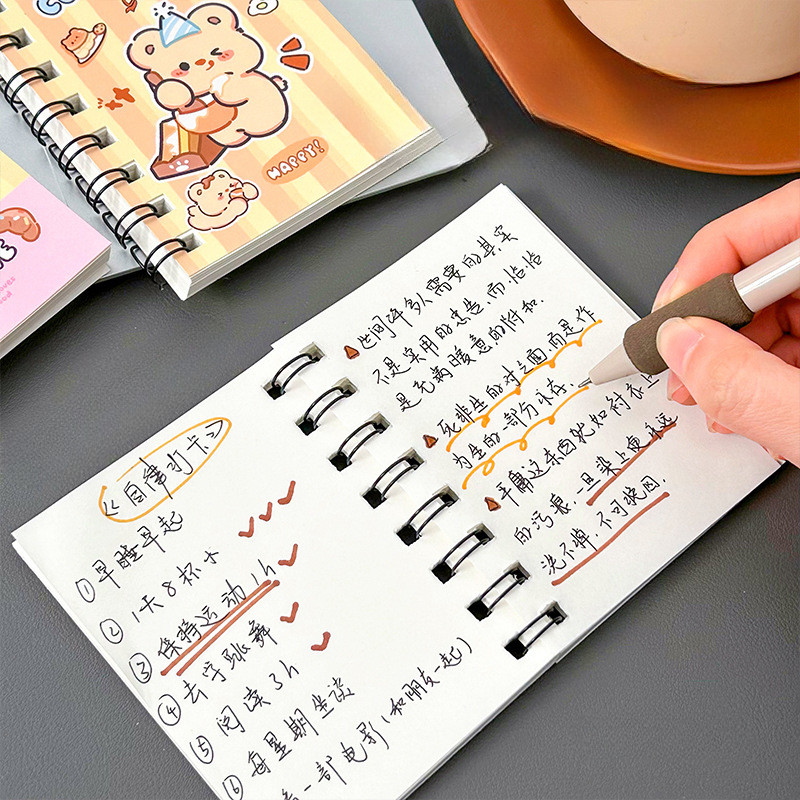 HAPPY!
《自律打卡》
① 早睡早起
② 1天8杯水
③ 保持运动1h
④ 去学跳舞
⑤ 阅读3h
⑥ 每星期坐谈
看一部电影(和朋友一起)
世间许多人需要的其实
不是实用的忠告,而恰恰
是充满暖意的附和.
死非生的对立面,而是作
为生的一部分永存.
平庸这东西犹如衬衣上
的污痕,一旦染上便永远
洗不掉,不可挽回.